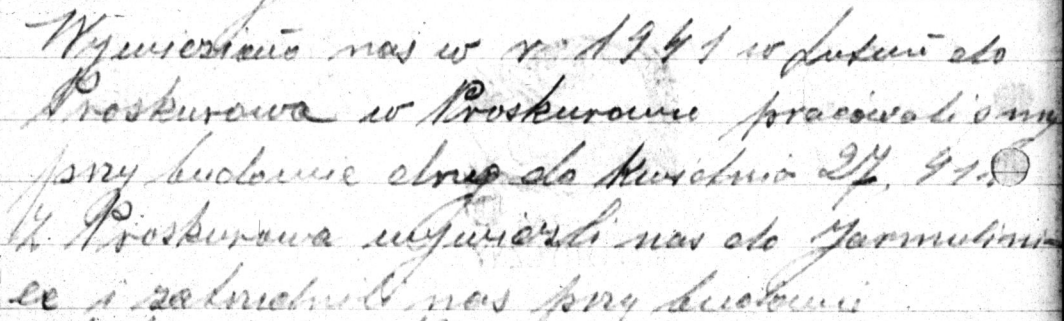 Wywieziono nas w r 1941 w lutem do
Proskurowa w Proskurowie pracowaliśmy
przy budowie dróg do kwietnia 27. 41.
Z Proskurowa wywieźli nas do Jarmulini-
ec i zatrudnili nas przy budowie